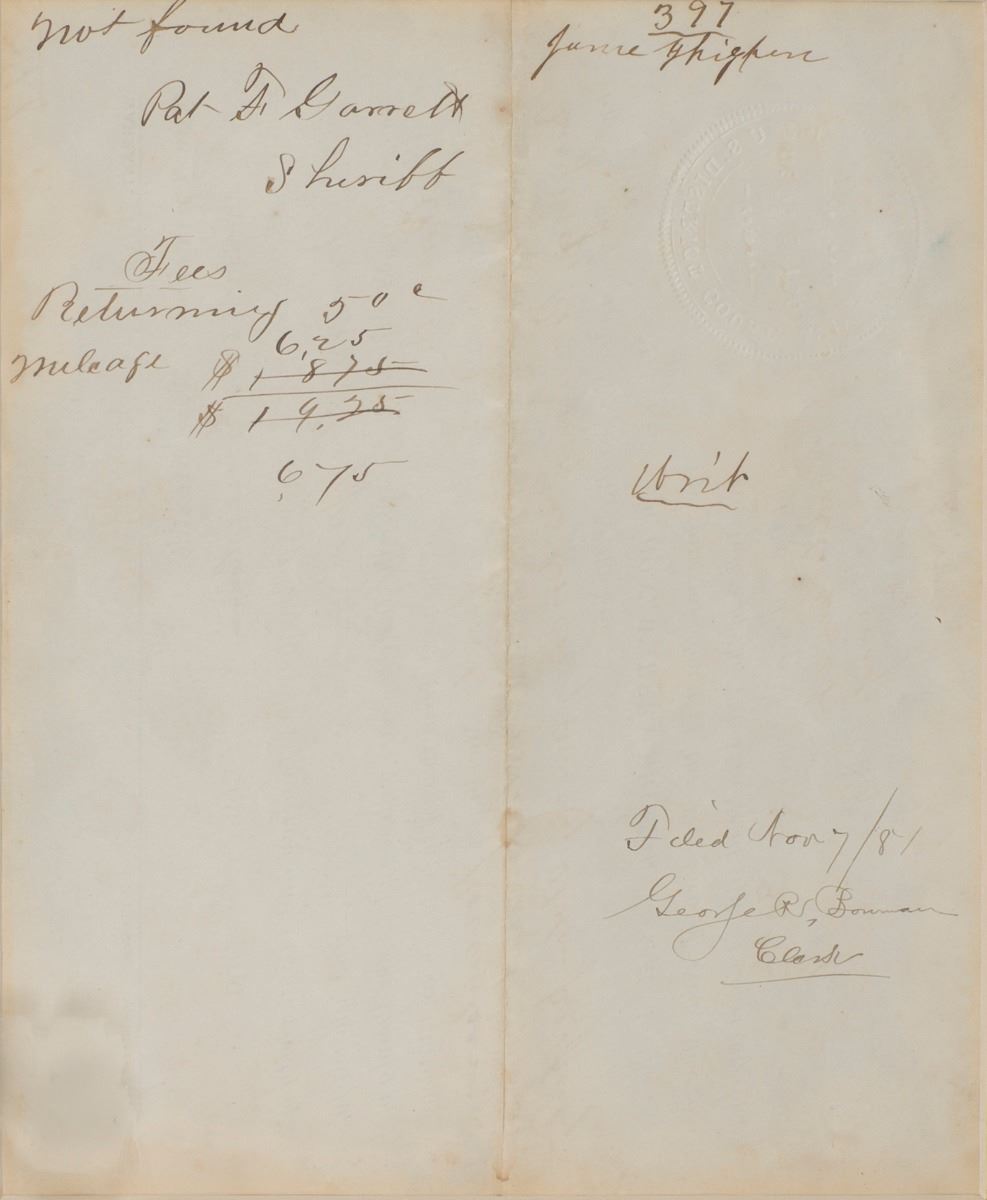 Not found
Pat F Garrett
Sheriff
Fees
Returning 50 c
6,25
Mileage $ 18 75
$ 19,25
6,75
397
Jane Thigpen
Writ
Filed Nov 7/81
George R, Bowman
Clerk